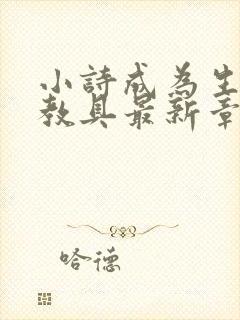 小詩成為生
教具最新章
哈德